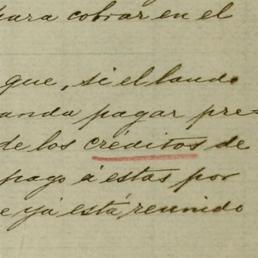 para cobrar en el
que, si el laudo
anda pagar pre=
de los créditos de
pago á estas por
e ya está, reunido